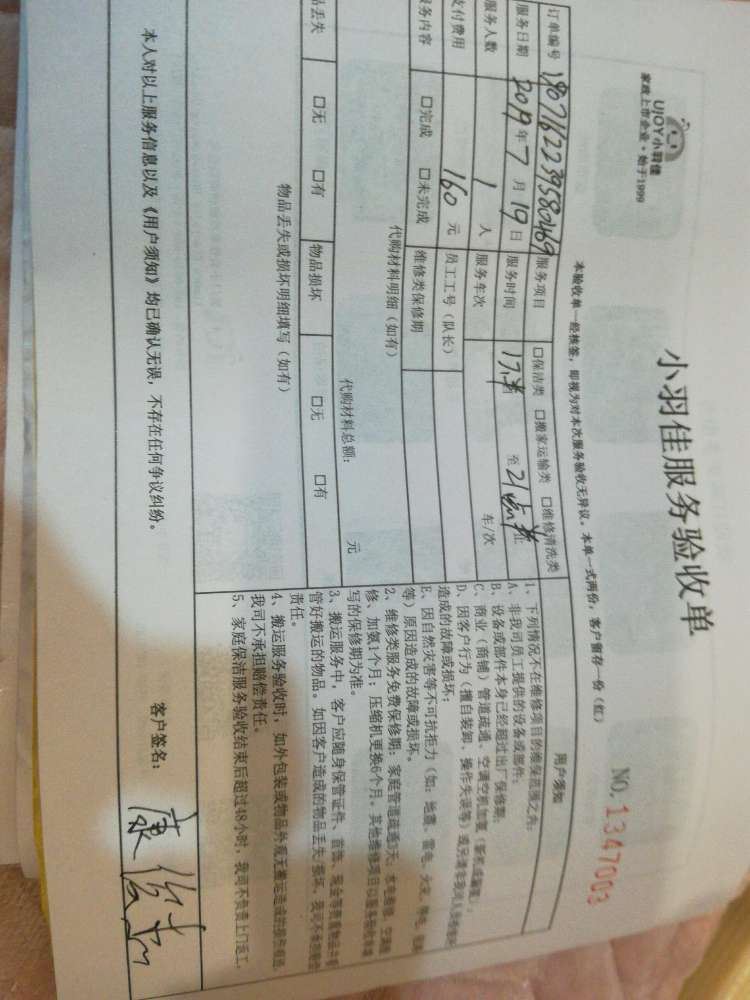 UJOY小羽佳
家政上市企业·始于1999
小羽佳服务验收单
NO. 1347003
本验收单一经核签，即视为对本次服务验收无异议。本单一式两份，客户留存一份（红）
订单编号 服务项目 □保洁类 □搬家运输类 □维修清洗类
服务日期 2019年7月19日 服务时间 17点半 至 21点半止
服务人数 1 人 服务车次 车/次
支付费用 160 元 员工工号（队长）
服务内容 □完成 □未完成 维修类保修期
代购材料明细（如有）
代购材料总额： 元
品丢失 □无 □有 物品损坏 □无 □有
物品丢失或损坏明细填写（如有）
用户须知
1、下列情况不在维修项目的维保范围之内：
A、非我司员工提供的设备或部件；
B、设备或部件本身已经超过出厂保修期；
C、商业（商铺）管道疏通、空调空机加氨（新机或漏氨）；
D、因客户行为（擅自装卸、操作失误等）或另请非我司人员维修
造成的故障或损坏；
E、因自然灾害等不可抗拒力（如：地震、雷电、火灾、
等）原因造成的故障或损坏。
2、维修类服务免费保修期：家庭管道疏通7天；水电维修、空调维
修、加氨1个月；压缩机更换6个月。其他维修项目以服务验收单填
写的保修期为准。
3、搬运服务中，客户应随身保管证件、首饰、现金等贵重物品并看
管好搬运的物品。如因客户造成的物品丢失/损坏，我司不承担赔偿
责任。
4、搬运服务验收时，如外包装或物品外观无搬运造成的损伤痕迹，
我司不承担赔偿责任。
5、家庭保洁服务验收结束后超过48小时，我司不负责上门返工。
本人对以上服务信息以及《用户须知》均已确认无误，不存在任何争议纠纷。 客户签名：